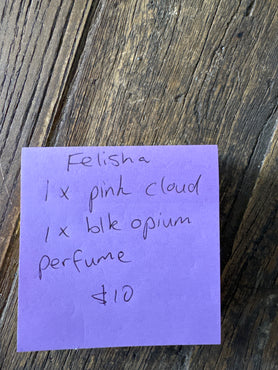 Felisha
1 x pink cloud
1 x blk opium
perfume
$10